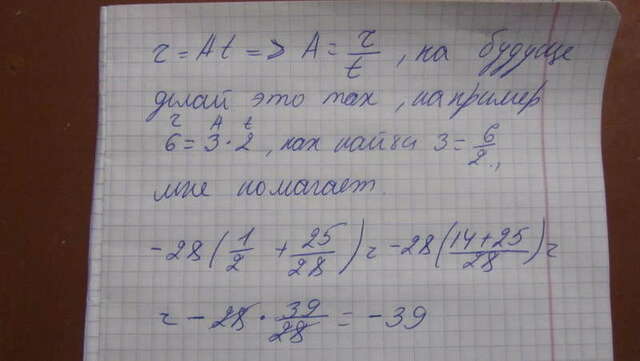 r = At => A = r/t, на будуще
делай это так, например
r A t
6 = 3 · 2, как найти 3 = 6/2,
мне помагает.
-28 (1/2 + 25/28) = -28 (14+25/28) =
= -28 · 39/28 = -39